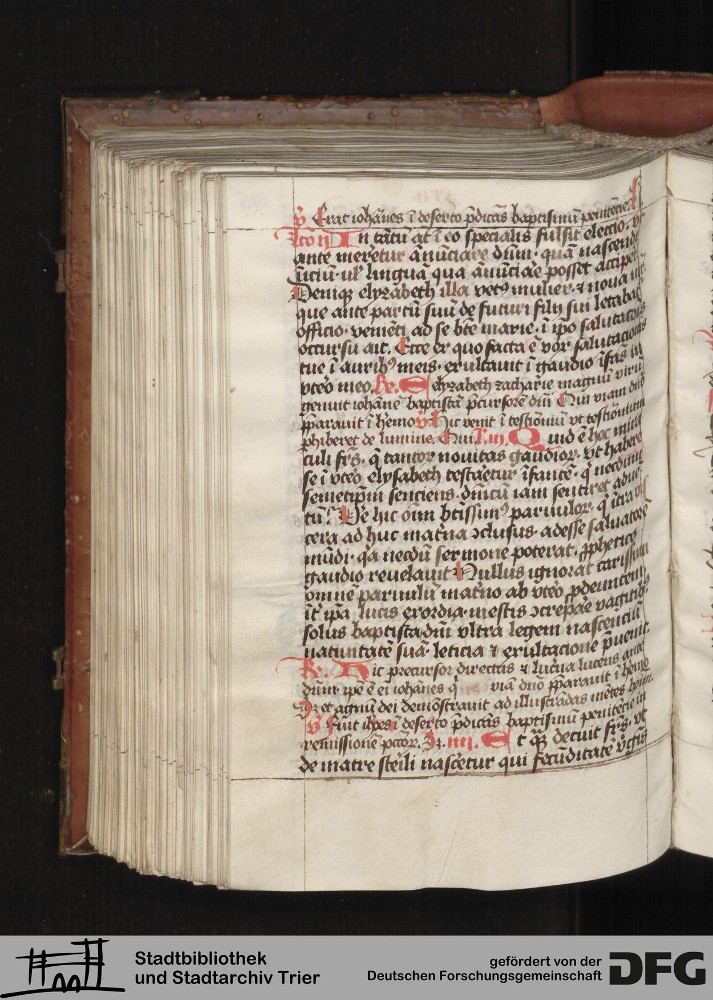 v̄ Erat ioha̅nes i̅ deserto p̅dica̅s baptismu̅ penite̅cie
In ta̅tu̅ at̅ i̅ eo specialis fulsit electio. vt
ante meretur a̅nu̅ciare dn̅m. qua̅ nascendi
iniciu̅ ul̅ lingua̅ qua a̅nu̅ciare posset accipe̅t
Deniqꝫ elyzabeth illa vetꝰ mulier. ⁊ noua
que ante partu̅ suu̅ de futuri filij sui letabat᷑
officio. venie̅ti ad se bt̅e marie. i̅ ipo̅ salutac̅ois
occursu ait. Ecce ex quo facta e̅ vox salutac̅ois
tue i̅ auribꝰ meis. exultauit i̅ gaudio i̅fa̅s in
vte̅o meo. R̅. Elyzabeth zacharie magnu̅ viru̅
genuit ioha̅ne̅ baptista̅ p̅cursore̅ dn̅i Qui viam dn̅o
p̅parauit i̅ h̅emo v̄ Hic venit i̅ testio̅niu̅ vt testionium
phiberet de lumine. Qui l. iij. Quid e̅ hoc mira
culi fr̅s. q̅ tantoꝝ nouitas gaudioꝝ. vt habere
se i̅ vte̅o elysabeth testaretur i̅fante̅. q̅ necdum
semetip̅m senciens. dn̅icu̅ iam sentiret aduen
tu̅? De hic om̅ btissimꝰ paruuloꝝ. q̅ i̅tra visc
cera ad huc mat̅na ꝯclusus. adesse saluatore̅
mu̅di. qa necdu̅ sermone poterat. p̅phetico
gaudio reuelauit Nullus ignorat carissimi
omne̅ paruulu̅ mat̅no ab vte̅o p̅deunte̅.
it̅ ip̅a lucis exordia. mestis ꝯcrepa̅e vagitibꝰ.
solus baptista. dn̅i vltra legem nascenciu̅
natiuitate̅ sua̅. leticia ⁊ exultacione p̅uenit.
R̅. Hic precursor directus ⁊ lucerna lucens ante
dn̅m ip̅e e̅ ei̅ ioha̅nes q̅ via̅ dn̅o p̅parauit i̅ h̅emo
Sꝫ et agnu̅ dei demo̅strauit ad illustra̅das me̅tes ho̅im.
v̄ Fuit ioh̅es i̅ deserto p̅dica̅s baptismu̅ penite̅cie in
remissione̅ pcc̅oꝝ. Sꝫ. iiij. Et q̅ꝫ decuit fr̅s. vt
de matre ste̅ili nascetur qui fecu̅ditate̅ v̅gis
Stadtbibliothek
und Stadtarchiv Trier
gefördert von der
Deutschen Forschungsgemeinschaft
DFG